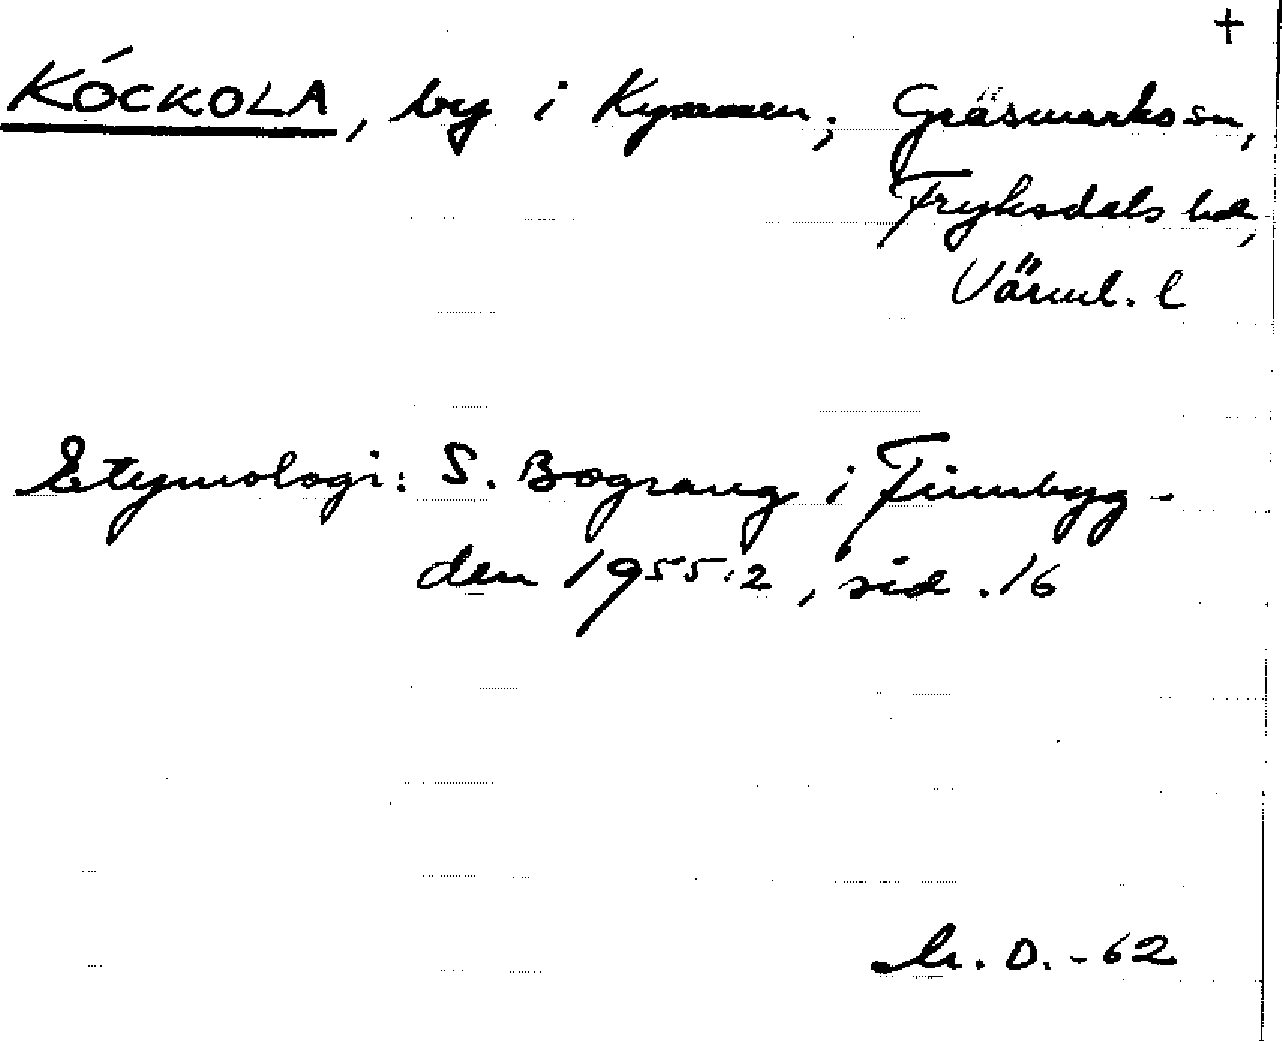 +
KÓCKOLA, by i Kymmen; Gräsmarks sn,
Fryksdals hd,
Värml. l
Etymologi: S. Bograng i Finnbyg-
den 1955:2, sid. 16
D. -62